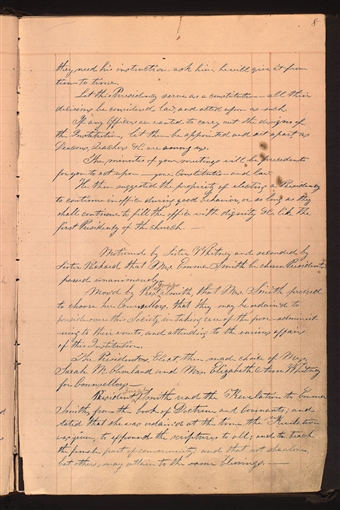 8
they need his instruction ask him, he will give it from
time to time.
Let this Presidency serve as a constitution—all their
decisions be considered law, and acted upon as such.
If any Officers are wanted to carry out the designs of
the Institution, let them be appointed and set apart as
Deacons, Teachers &c. are among us.
The minutes of your meetings will be precedents
for you to act upon—your Constitution and law.
He then suggested the propriety of electing a Presidency
to continue in office during good behavior, or so long as they
shall continue to fill the office with dignity &c. like the
first Presidency of the church—
Motioned by Sister Whitney and seconded by
Sister Packard that Mrs. Emma Smith be chosen President
passed unanimously
Moved by Prest. Smith, that Mrs. Smith proceed
to choose her Counsellors, that they may be ordained to
preside over this Society, in taking care of the poor—administ-
ering to their wants, and attending to the various affairs
of this Institution.
The Presidentess Elect then made choice of Mrs.
Sarah M. Cleveland and Mrs. Elizabeth Ann Whitney
for Counsellors—
President Smith read the Revelation to Emma
Smith, from the book of Doctrine and Covenants; and
stated that she was ordained at the time the Revelation
was given, to expound the scriptures to all; and to teach
the female part of community; and that not she alone
but others, may attain to the same blessings—